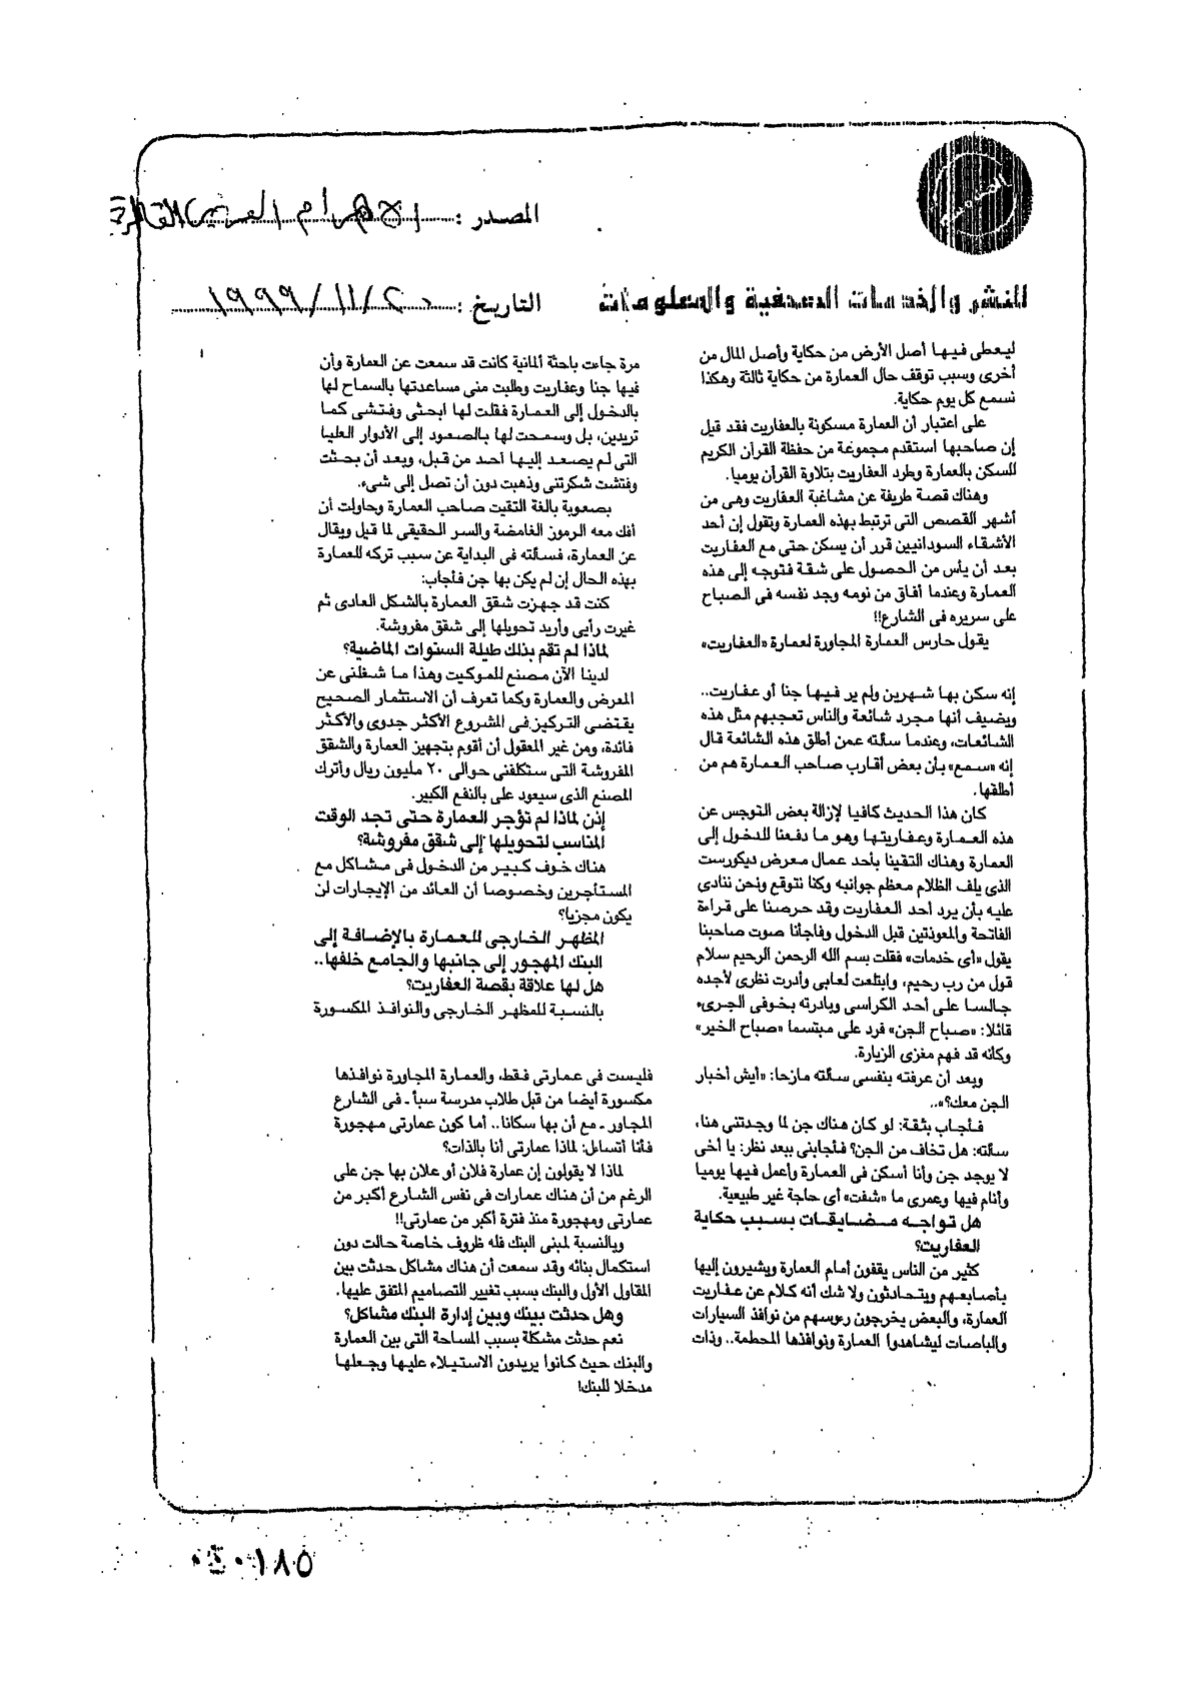 المصدر : الأهرام العربي القاهرة
للنشر والخدمات الصحفية والمعلومات
التاريخ : ٢٠/١١/١٩٩٩
ليعطى فيها أصل الأرض من حكاية وأصل المال من
أخرى وسبب توقف حال العمارة من حكاية ثالثة وهكذا
نسمع كل يوم حكاية.
على اعتبار أن العمارة مسكونة بالعفاريت فقد قيل
إن صاحبها استقدم مجموعة من حفظة القرآن الكريم
للسكن بالعمارة وطرد العفاريت بتلاوة القرآن يوميا.
وهناك قصة طريفة عن مشاغبة العفاريت وهى من
أشهر القصص التى ترتبط بهذه العمارة وتقول إن أحد
الأشقاء السودانيين قرر أن يسكن حتى مع العفاريت
بعد أن يأس من الحصول على شقة فتوجه إلى هذه
العمارة وعندما أفاق من نومه وجد نفسه فى الصباح
على سريره فى الشارع!!
يقول حارس العمارة المجاورة لعمارة «العفاريت»
إنه سكن بها شهرين ولم ير فيها جنا أو عفاريت..
ويضيف أنها مجرد شائعة والناس تعجبهم مثل هذه
الشائعات، وعندما سألته عمن أطلق هذه الشائعة قال
إنه «سمع» بأن بعض أقارب صاحب العمارة هم من
أطلقها.
كان هذا الحديث كافيا لإزالة بعض التوجس عن
هذه العمارة وعفاريتها وهو ما دفعنا للدخول إلى
العمارة وهناك التقينا بأحد عمال معرض ديكورست
الذى يلف الظلام معظم جوانبه وكنا نتوقع ونحن ننادى
عليه بأن يرد أحد العفاريت وقد حرصنا على قراءة
الفاتحة والمعوذتين قبل الدخول وفاجأنا صوت صاحبنا
يقول «أى خدمات» فقلت بسم الله الرحمن الرحيم سلام
قول من رب رحيم، وابتلعت لعابى وأدرت نظرى لأجده
جالسا على أحد الكراسى وبادرته بخوفى الجرىء
قائلا: «صباح الجن» فرد على مبتسما «صباح الخير»
وكانه قد فهم مغزى الزيارة.
وبعد أن عرفته بنفسى سألته مازحا: «أيش أخبار
الجن معك؟»..
فأجاب بثقة: لو كان هناك جن لما وجدتنى هنا،
سألته: هل تخاف من الجن؟ فأجابنى ببعد نظر: يا أخى
لا يوجد جن وأنا أسكن فى العمارة وأعمل فيها يوميا
وأنام فيها وعمرى ما «شفت» أى حاجة غير طبيعية.
هل تواجه مضايقات بسبب حكاية
العفاريت؟
كثير من الناس يقفون أمام العمارة ويشيرون إليها
بأصابعهم ويتحادثون ولا شك أنه كلام عن عفاريت
العمارة، والبعض يخرجون رءوسهم من نوافذ السيارات
والباصات ليشاهدوا العمارة ونوافذها المحطمة.. وذات
مرة جاءت باحثة ألمانية كانت قد سمعت عن العمارة وأن
فيها جنا وعفاريت وطلبت منى مساعدتها بالسماح لها
بالدخول إلى العمارة فقلت لها ابحثى وفتشى كما
تريدين، بل وسمحت لها بالصعود إلى الأدوار العليا
التى لم يصعد إليها أحد من قبل، وبعد أن بحثت
وفتشت شكرتنى وذهبت دون أن تصل إلى شىء.
بصعوبة بالغة التقيت صاحب العمارة وحاولت أن
أفك معه الرموز الغامضة والسر الحقيقى لما قيل ويقال
عن العمارة، فسألته فى البداية عن سبب تركه للعمارة
بهذه الحال إن لم يكن بها جن فأجاب:
كنت قد جهزت شقق العمارة بالشكل العادى ثم
غيرت رأيى وأريد تحويلها إلى شقق مفروشة.
لماذا لم تقم بذلك طيلة السنوات الماضية؟
لدينا الآن مصنع للموكيت وهذا ما شغلنى عن
المعرض والعمارة وكما تعرف أن الاستثمار الصحيح
يقتضى التركيز فى المشروع الأكثر جدوى والأكثر
فائدة، ومن غير المعقول أن أقوم بتجهيز العمارة والشقق
المفروشة التى ستكلفنى حوالى ٢٠ مليون ريال وأترك
المصنع الذى سيعود على بالنفع الكبير.
إذن لماذا لم تؤجر العمارة حتى تجد الوقت
المناسب لتحويلها إلى شقق مفروشة؟
هناك خوف كبير من الدخول فى مشاكل مع
المستأجرين وخصوصا أن العائد من الإيجارات لن
يكون مجزيا؟
المظهر الخارجى للعمارة بالإضافة إلى
البنك المهجور إلى جانبها والجامع خلفها..
هل لها علاقة بقصة العفاريت؟
بالنسبة للمظهر الخارجى والنوافذ المكسورة
فليست فى عمارتى فقط، والعمارة المجاورة نوافذها
مكسورة أيضا من قبل طلاب مدرسة سبأ ـ فى الشارع
المجاور ـ مع أن بها سكانا.. أما كون عمارتى مهجورة
فأنا أتساءل: لماذا عمارتى أنا بالذات؟
لماذا لا يقولون إن عمارة فلان أو علان بها جن على
الرغم من أن هناك عمارات فى نفس الشارع أكبر من
عمارتى ومهجورة منذ فترة أكبر من عمارتى!!
وبالنسبة لمبنى البنك فله ظروف خاصة حالت دون
استكمال بنائه وقد سمعت أن هناك مشاكل حدثت بين
المقاول الأول والبنك بسبب تغيير التصاميم المتفق عليها.
وهل حدثت بينك وبين إدارة البنك مشاكل؟
نعم حدثت مشكلة بسبب المساحة التى بين العمارة
والبنك حيث كانوا يريدون الاستيلاء عليها وجعلها
مدخلا للبنك!
٠١٨٥